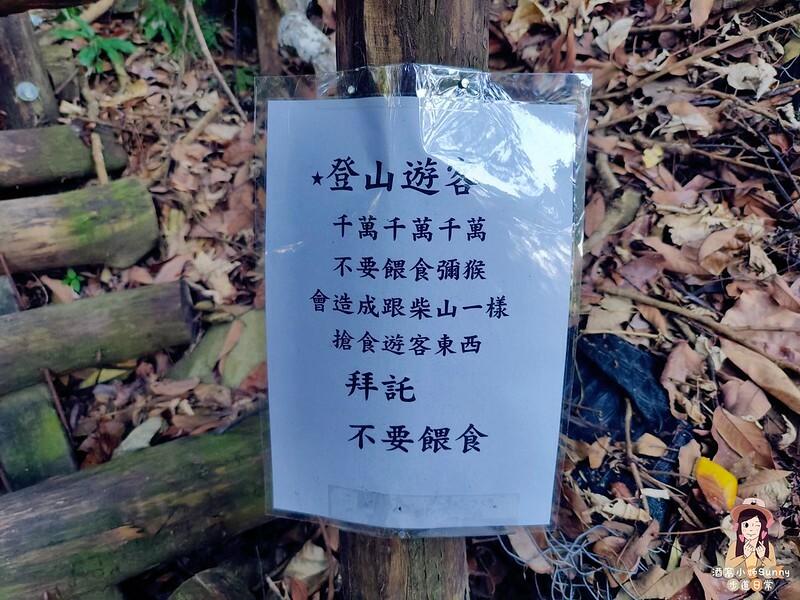 ★登山遊客
千萬千萬千萬
不要餵食彌猴
會造成跟柴山一樣
搶食遊客東西
拜託
不要餵食
酒客小姊Sunny
步道日常